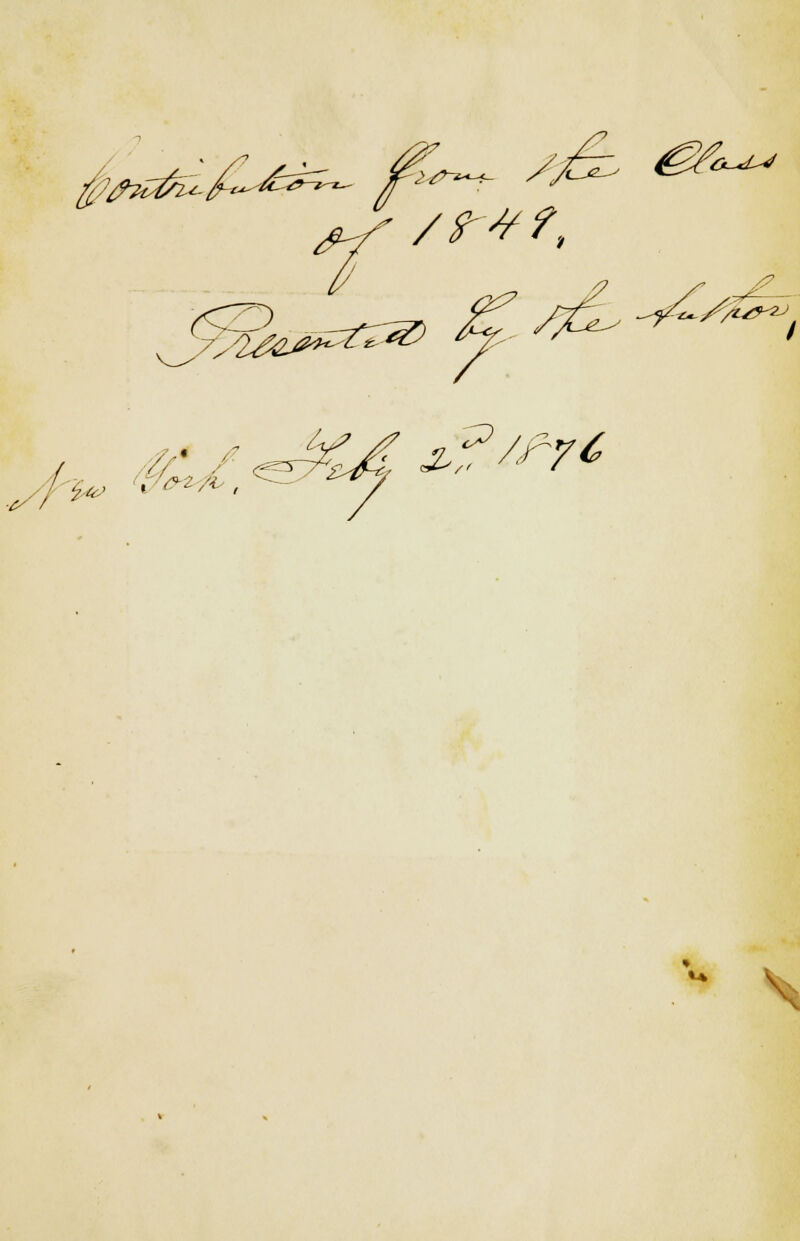 Contribution from the Class
of 1849,
Presented by the Author,
New York, Feby 2d 1876